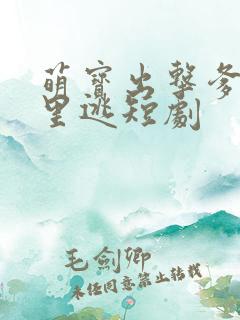 萌寶出擊爹
里逃短劇
毛劍卿
未任同意禁止转载